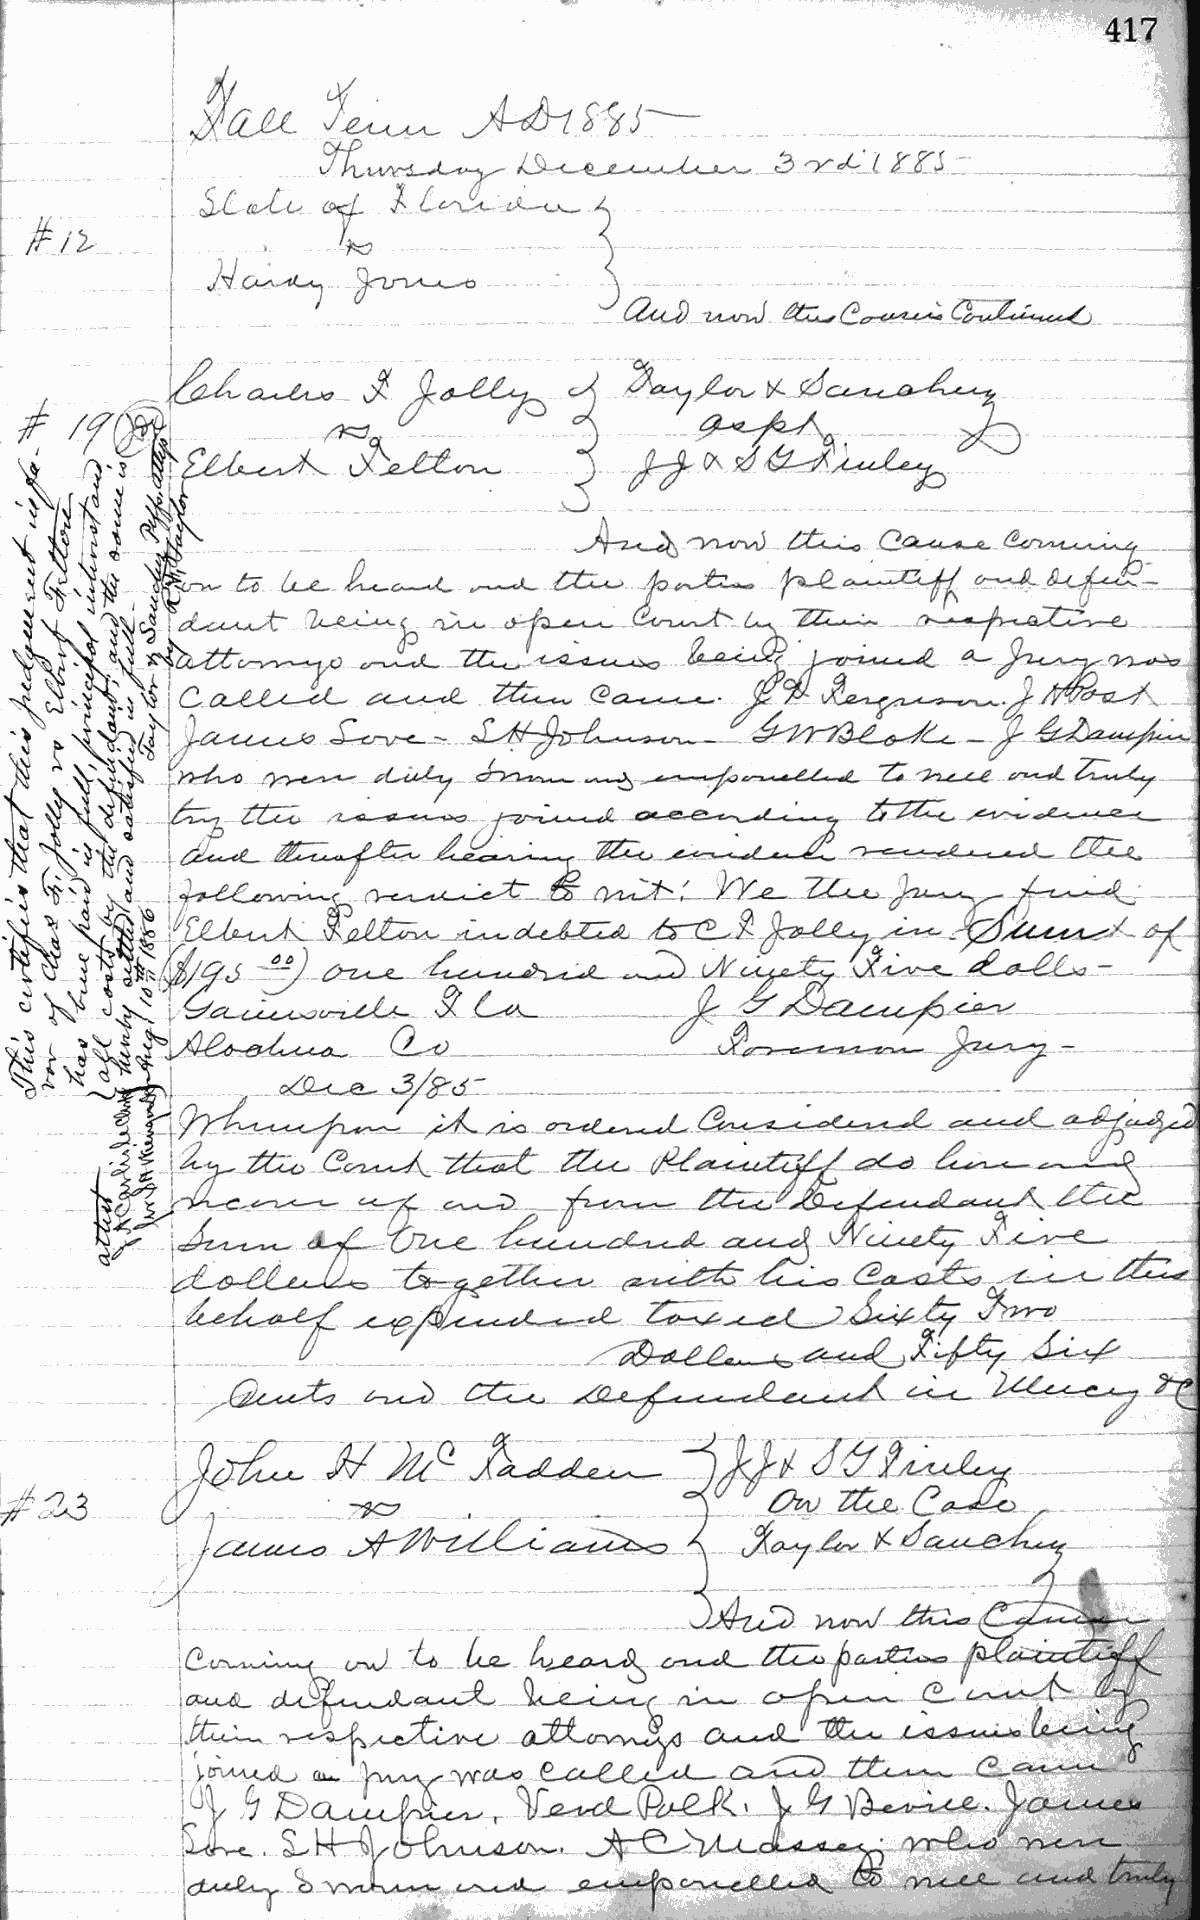 417
Fall Term AD 1885
Thursday December 3rd 1885
State of Florida
#12
vs
Hardy Jones
And now this Cause is Continued
Charles F Jolly Taylor & Sanchez
#19
vs asspt
Elbert Felton J J & S G Finley
And now this Cause coming
on to be heard and the parties plaintiff and defen-
dant being in open Court by their respective
attorneys and the issues being joined a Jury was
called and then came. J F Ferguson. J H Post
James Love - S H Johnson - G W Blake - J G Dampier
who were duly sworn and empanelled to well and truly
try the issues joined according to the evidence
and thereafter hearing the evidence rendered the
following verdict to wit: We the Jury find
Elbert Felton indebted to C F Jolly in Sum of
($195 00) one hundred and Ninety Five dolls-
Gainesville Fla J G Dampier
Alachua Co Foreman Jury-
Dec 3/85
Whereupon it is ordered Considered and adjudged
by the Court that the Plaintiff do have and
recover of and from the Defendant the
Sum of One hundred and Ninety Five
dollars together with his Costs in this
behalf expended taxed Sixty Two
Dollars and Fifty Six
Cents and the Defendant in Mercy &c
This certifies that this judgement in fa-
vor of Chas F. Jolly vs Elbert Felton
has bine paid in full, principal interest and
all costs by the defendant, and the same is
hereby settled and satisfied in full-
Aug 10th 1886 Taylor & Sanchez Plffs attys
by Taylor
attest
John H McFadden J J & S G Finley
#23
vs On the Case
James A Williams Taylor & Sanchez
And now this Cause
coming on to be heard and the parties plaintiff
and defendant being in open Court by
their respective attorneys and the issues being
joined a jury was called and then came
J G Dampier, Verd Polk. J G Bevill. James
Love. S H Johnson. A C Massey. who were
duly sworn and empanelled to well and truly